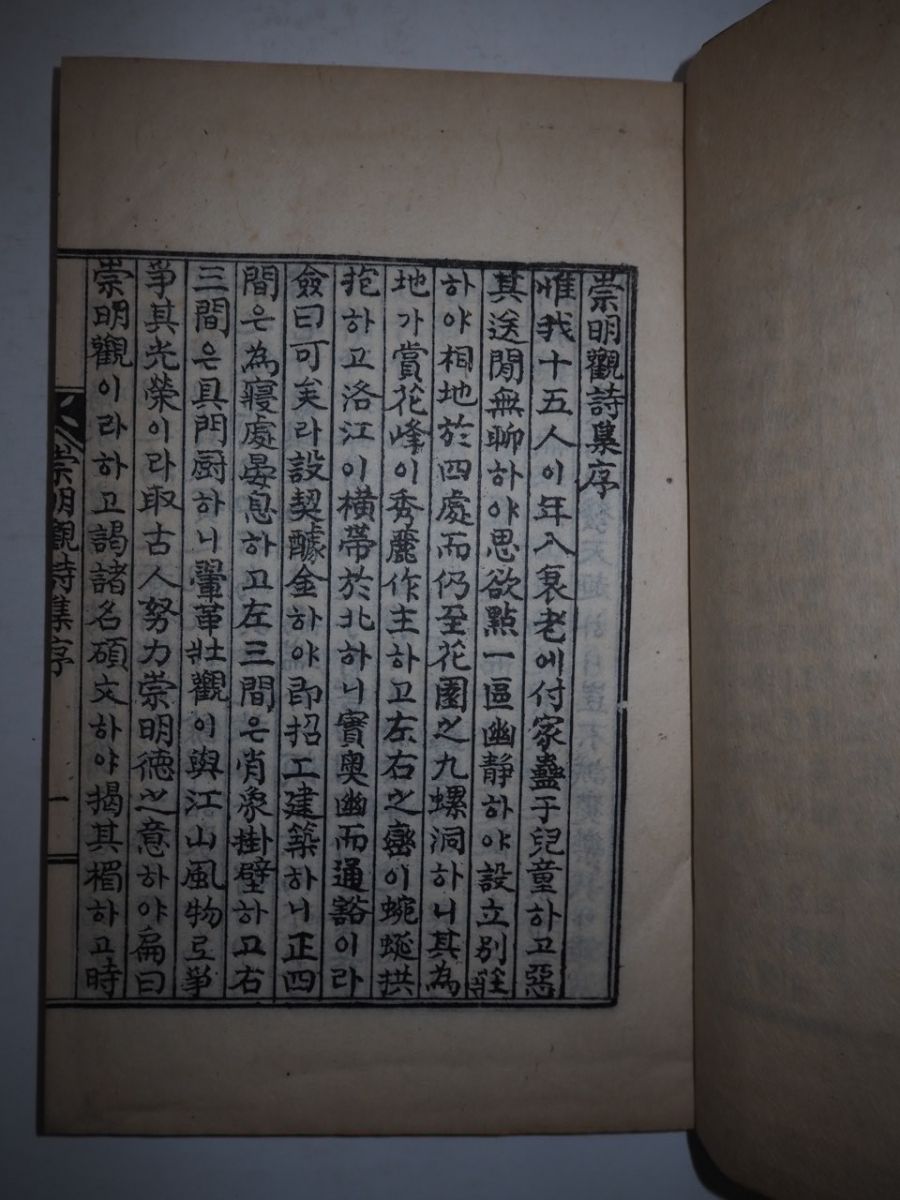 崇明觀詩集序
惟我十五人이年入衰老에付家蠱于兒童하고惡
其送閒無聊하야思欲點一區幽靜하야設立別莊
하야相地於四處而仍至花園之九螺洞하니其為
地가賞花峰이秀麗作主하고左右之巒이蜿蜒拱
抱하고洛江이橫帶於北하니實奧幽而通豁이라
僉曰可矣라設契醵金하야即招工建築하니正四
間은為寢處晏息하고左三間은肖象掛壁하고右
三間은具門厨하니翬革壯觀이與江山風物로爭
爭其光榮이라取古人努力崇明德之意하야扁曰
崇明觀이라하고謁諸名碩文하야揭其楣하고時
崇明觀詩集序
一